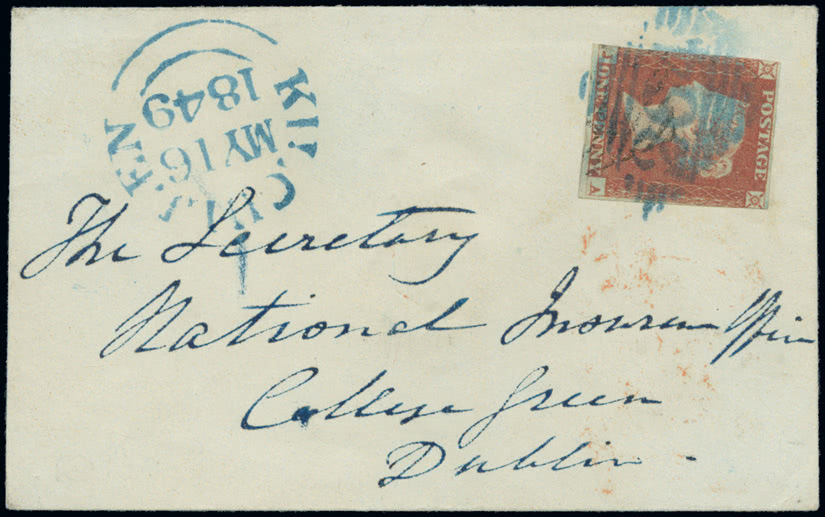 KILCULLEN
MY 16
1849
POSTAGE
ONE PENNY
J
A
The Secretary
National Insurance Office
College Green
Dublin -